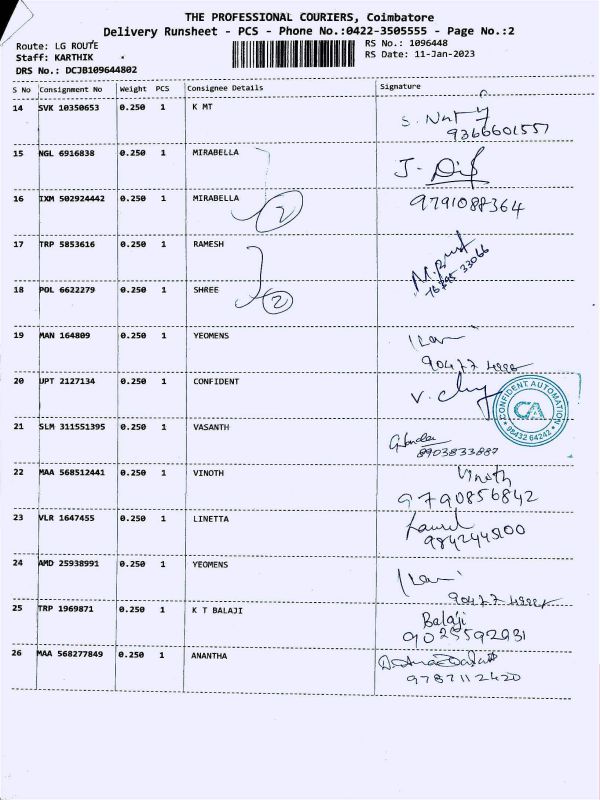 THE PROFESSIONAL COURIERS, Coimbatore
Delivery Runsheet - PCS - Phone No.:0422-3505555 - Page No.:2
Route: LG ROUTE
RS No.: 1096448
Staff: KARTHIK
RS Date: 11-Jan-2023
DRS No.: DCJB109644802
S No Consignment No Weight PCS Consignee Details Signature
14 SVK 10350653 0.250 1 K MT
9366601557
15 NGL 6916838 0.250 1 MIRABELLA
16 IXM 502924442 0.250 1 MIRABELLA 2 9791088364
17 TRP 5853616 0.250 1 RAMESH
18 POL 6622279 0.250 1 SHREE 2
19 MAN 164809 0.250 1 YEOMENS
20 UPT 2127134 0.250 1 CONFIDENT
CONFIDENT AUTOMATION CA 98432 64242
21 SLM 311551395 0.250 1 VASANTH
8903833887
22 MAA 568512441 0.250 1 VINOTH Vinoth
9790856842
23 VLR 1647455 0.250 1 LINETTA
24 AMD 25938991 0.250 1 YEOMENS
25 TRP 1969871 0.250 1 K T BALAJI Balaji
9025592931
26 MAA 568277849 0.250 1 ANANTHA
9787112420